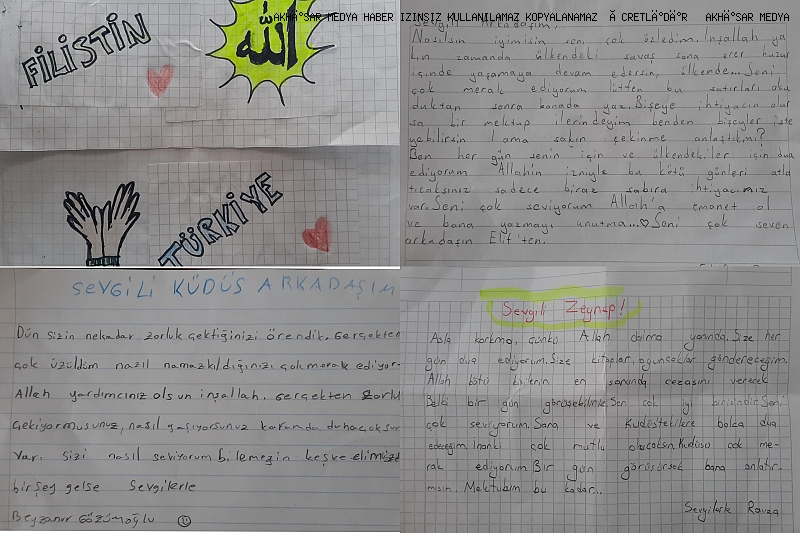 AKHİSAR MEDYA HABER IZINSIZ KULLANILAMAZ KOPYALANAMAZ Ã CRETLÄ°DÄ°R AKHÄ°SAR MEDYA
FİLİSTİN
الله
TÜRKİYE
Sevgili Arkadaşım,
Nasılsın iyimisin seni çok özledim. İnşallah ya
kın zamanda ülkendeki savaş sona erer huzur
içinde yaşamaya devam edersin, ülkende... Seni
çok merak ediyorum lütfen bu satırları oku
duktan sonra banada yaz. Bişeye ihtiyacın olur
sa bir mektup ilerindeyim benden bişeyler iste
yebilirsin tama sakın çekinme anlaştıkmı?
Ben her gün senin için ve ülkendekiler için dua
ediyorum Allah'ın izniyle bu kötü günleri atla
tıcaksınız sadece biraz sabıra ihtiyacınız
var. Seni çok seviyorum Allah'a emanet ol
ve bana yazmayı unutma...♡ Seni çok seven
arkadaşın Elif'ten.
SEVGİLİ KÜDÜS ARKADAŞIM
Dün sizin nekadar zorluk çektiğinizi örendik. Gerçekten
çok üzüldüm nasıl namaz kıldığınızı çok merak ediyor-
Allah yardımcınız olsun inşallah. Gerçekten zorlu
çekiyormusunuz, nasıl yaşıyorsunuz kafamda daha çok sor
var. Sizi nasıl seviyorum bilemezin keşke elimizd
birşey gelse Sevgilerle
Beyzanur Gözümoğlu ☺
Sevgili Zeynep!
Asla korkma, çünkü Allah daima yanında. Size her
gün dua ediyorum. Size kitaplar, oyuncaklar göndereceğim.
Allah kötü kişilerin en sonunda cezasını verecek
Belki bir gün görüşebiliriz. Sen çok iyi birisindir. Seni
çok seviyorum. Sana ve Kudüstekilere bolca dua
edeceğim. İnanki çok mutlu olucaksın. Kudüsü çok me-
rak ediyorum. Bir gün görüşürsek bana anlatır-
mısın. Mektubum bu kadar...
Sevgilerle Ravza